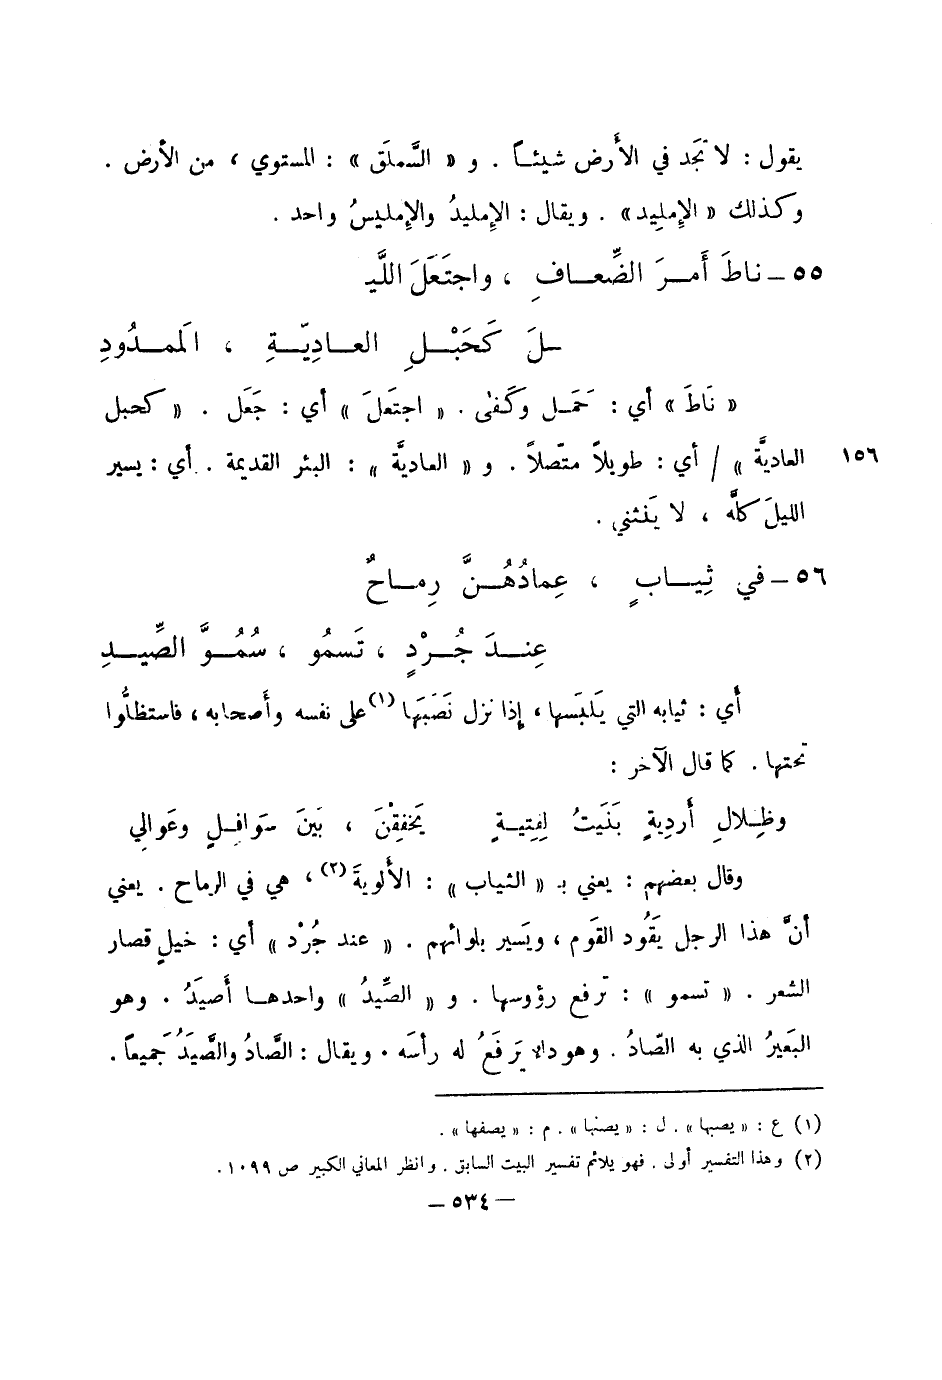 يقول : لا تجَد في الأَرض شيئاً . و « السَّملَق » : المستوي ، من الأرض .
وكذلك « الإمليد» . ويقال : الإمليدُ والإمليسُ واحد .
٥٥ – ناطَ أَمـرَ الضِّعـافِ ، واجتَعَلَ اللَّيـ
ـلَ كَحَبْـلِ العـادِيّـةِ ، المَمـدُودِ
« نَاطَ » أي : حَمَـل وكَفىٰ . « اجتَعلَ » أي : جَعَل . « كحبل
١٥٦ العاديَّة » / أي : طويلاً متّصلاً . و « العاديَّة » : البئر القديمة . أي : يسير
الليلَ كلَّه ، لا يَنثني .
٥٦ – في ثِيـابٍ ، عِمادُهُـنَّ رِمـاحٌ
عِنـدَ جُـرْدٍ ، تَسمُو ، سُمُـوَّ الصِّيـدِ
أَي : ثيابه التي يَلبَسها ، إذا نزل نَصَبَها (١) على نفسه وأَصحابه ، فاستظلُّوا
تحتها . كما قال الآخر :
وظِلالِ أَردِيةٍ بَنَيتُ لِفِتيـةٍ يَخفِقْنَ ، بَينَ سَوافِلٍ وعَوالي
وقال بعضهم : يعني بـ « الثياب » : الأَلويةَ (٢) ، هي في الرماح . يعني
أنَّ هذا الرجل يَقُود القَوم ، ويَسير بلوائهم . « عند جُرْد » أي : خيلٍ قصار
الشعر . « تسمو » : ترفع رؤوسها . و « الصِّيدُ » واحدهـا أَصيَدُ . وهو
البَعيرُ الذي به الصّادُ . وهو داء يَرفَعُ له رأسَه . ويقال : الصَّادُ والصَّيَدُ جميعاً .
(١) ع : « يصبها » . ل : « يصنبا » . م : « يصفها » .
(٢) وهذا التفسير أولى . فهو يلائم تفسير البيت السابق . وانظر المعاني الكبير ص ١٠٩٩ .
– ٥٣٤ –